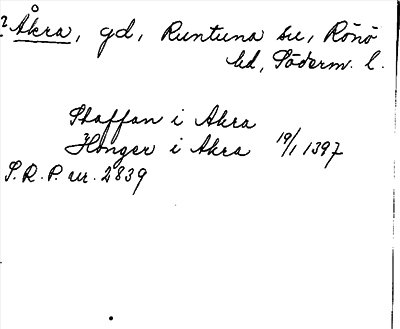 ? Åkra, gd, Runtuna sn, Rönö
hd, Söderm. l.
Staffan i Akra
Honger i Akra 19/1 1397
S.R.P. nr. 2839